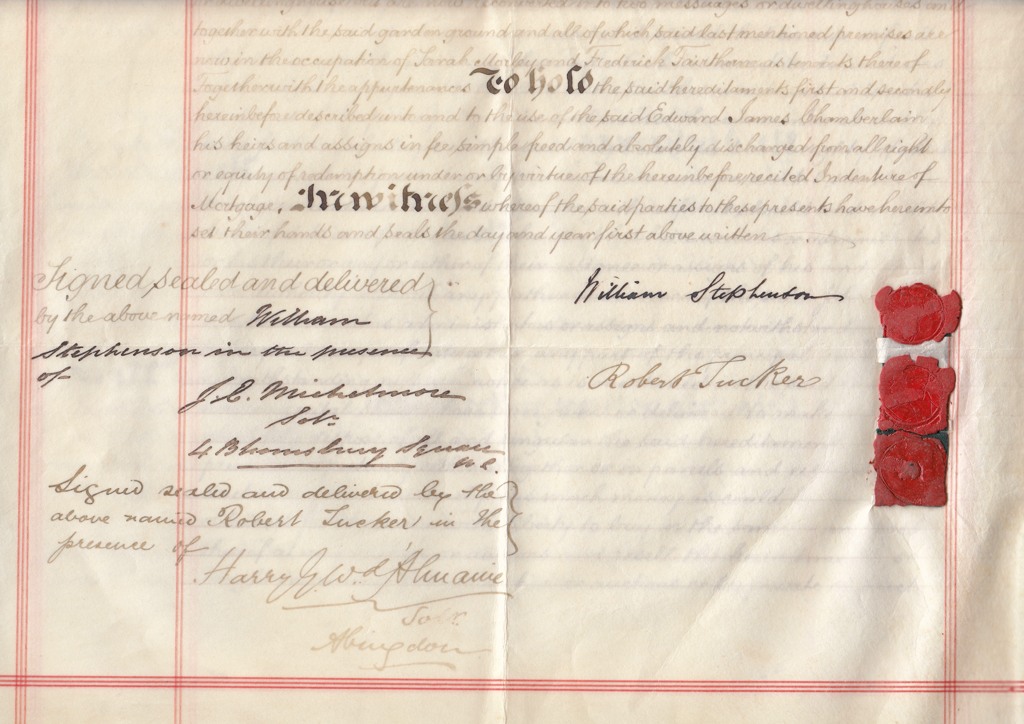 dwelling houses are now converted into two messuages or dwelling houses and
together with the said garden ground and all of which said last mentioned premises are
now in the occupation of Sarah Morley and Frederick Fairthorne as tenants thereof
Together with the appurtenances To hold the said hereditaments first and secondly
hereinbefore described unto and to the use of the said Edward James Chamberlain
his heirs and assigns in fee simple freed and absolutely discharged from all right
or equity of redemption under or by virtue of the hereinbefore recited Indenture of
Mortgage. In witness whereof the said parties to these presents have hereunto
set their hands and seals the day and year first above written
Signed sealed and delivered
by the above named William
Stephenson in the presence
of
William Stephenson
J. E. Michelmore
Solr.
4 Bloomsbury Square
W.C.
Robert Tucker
Signed sealed and delivered by the
above named Robert Tucker in the
presence of
Harry J. W. d'Almaine
Solr.
Abingdon